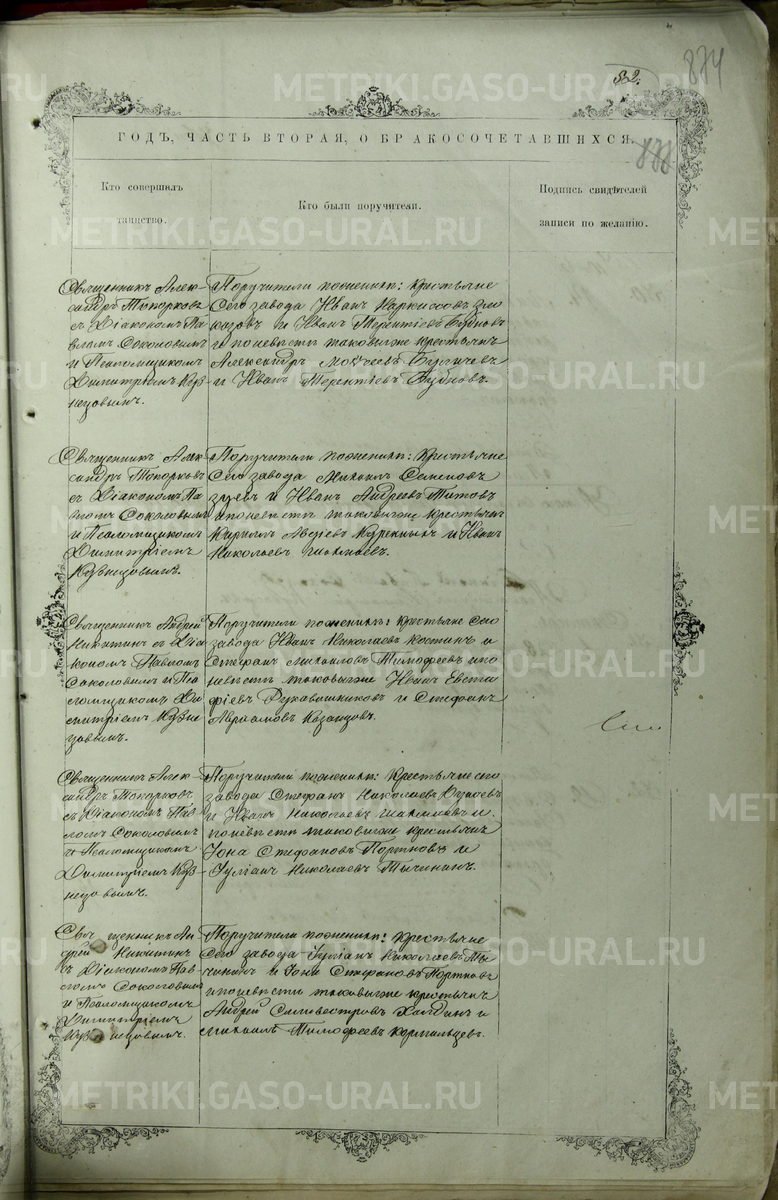 82.
874
878
ГОДЪ, ЧАСТЬ ВТОРАЯ, О БРАКОСОЧЕТАВШИХСЯ.
Кто совершалъ
таинство.
Кто были поручители.
Подпись свидѣтелей
записи по желанію.
Священникъ Алек-
сандръ Топорковъ
съ Діакономъ Па-
вломъ Соколовымъ
и Псаломщикомъ
Димитріемъ Куз-
нецовымъ.
Поручители по женихѣ: крестьяне
сего завода Иванъ Наркиссовъ
и Иванъ Терентіевъ Бубновъ
и по невѣстѣ таковые же крестьяне
Александръ Моѵсеевъ
и Иванъ Терентіевъ Бубновъ.
Священникъ Алек-
сандръ Топорковъ
съ Діакономъ Па-
вломъ Соколовымъ
и Псаломщикомъ
Димитріемъ
Кузнецовымъ.
Поручители по женихѣ: крестьяне
сего завода Михаилъ Семеновъ
Зуевъ и Иванъ Андреевъ Титовъ
и по невѣстѣ таковые же крестьяне
Кириллъ Авдіевъ и Иванъ
Николаевъ
Священникъ Андрей
Никитинъ съ Діа-
кономъ Павломъ
Соколовымъ и Пса-
ломщикомъ Ди-
митріемъ Кузне-
цовымъ.
Поручители по женихѣ: крестьяне сего
завода Иванъ Николаевъ Костинъ и
Стефанъ Михаиловъ Тимофеевъ и по
невѣстѣ таковые же Иванъ Евста-
фіевъ Рукавишниковъ и Стефанъ
Авраамовъ Казанцовъ.
Священникъ Алек-
сандръ Топорковъ
съ Діакономъ Пав-
ломъ Соколовымъ
и Псаломщикомъ
Димитріемъ Куз-
нецовымъ.
Поручители по женихѣ: крестьяне сего
завода Стефанъ Николаевъ
и Иванъ Николаевъ и
по невѣстѣ таковые же крестьяне
Іона Стефановъ Портновъ и
Іуліанъ Николаевъ Тычининъ.
Священникъ Ан-
дрей Никитинъ
съ Діакономъ Пав-
ломъ Соколовымъ
и Псаломщикомъ
Димитріемъ
Кузнецовымъ.
Поручители по женихѣ: крестьяне
сего завода Іуліанъ Николаевъ Ты-
чининъ и Іона Стефановъ Портновъ
и по невѣстѣ таковые же крестьяне
Андрей Силивестровъ Халдинъ и
Михаилъ Тимофеевъ Кормильцевъ.
METRIKI.GASO-URAL.RU